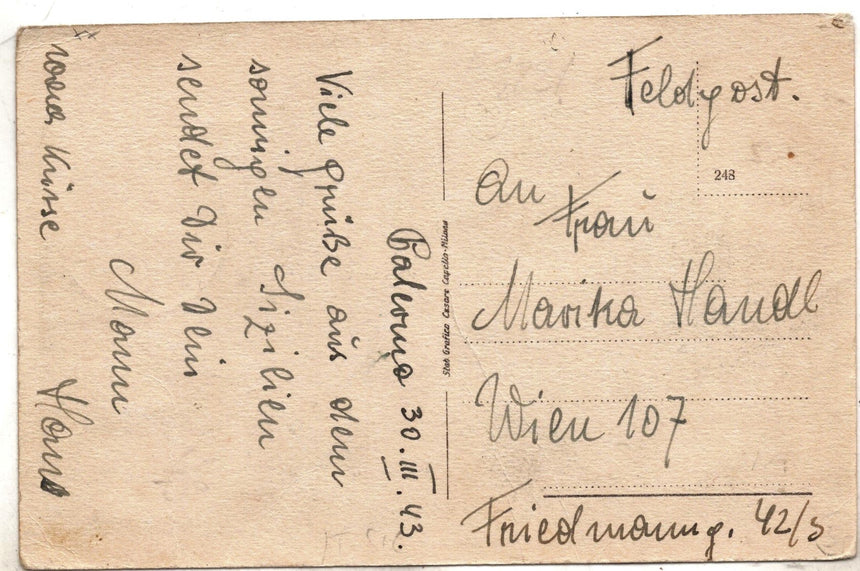 Palermo 30.III.43.
Viele Grüße aus dem
sonnigen Sizilien
sendet Dir Dein
Mann
Küsse Hans
Feldpost.
248
An
Frau
Marika Handl
Wien 107
Friedmanng. 42/3
Stab Grafico Cesare Capello-Milano